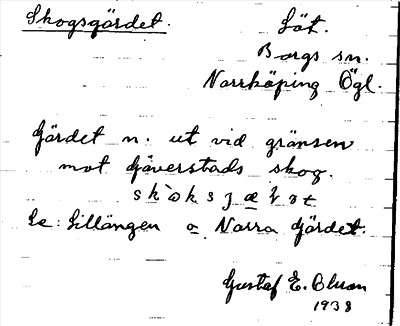 Skogsgärdet. Löt.
Borgs sn.
Norrköping Ögl.
Gärdet n. ut vid gränsen
mot Gäverstads skog.
Se: Lillängen o Norra Gärdet.
Gustaf E. Bluom
1938